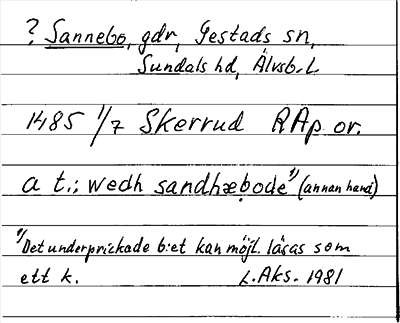 ? Sannebo, gdr, Gestads sn,
Sundals hd, Älvsb. l.
1485 1/7 Skerrud RAp or.
a t.: wedh sandhæḅode¹⁾ (annan hand)
¹⁾ Det underprickade b:et kan möjl. läsas som
ett k. L. Aks. 1981